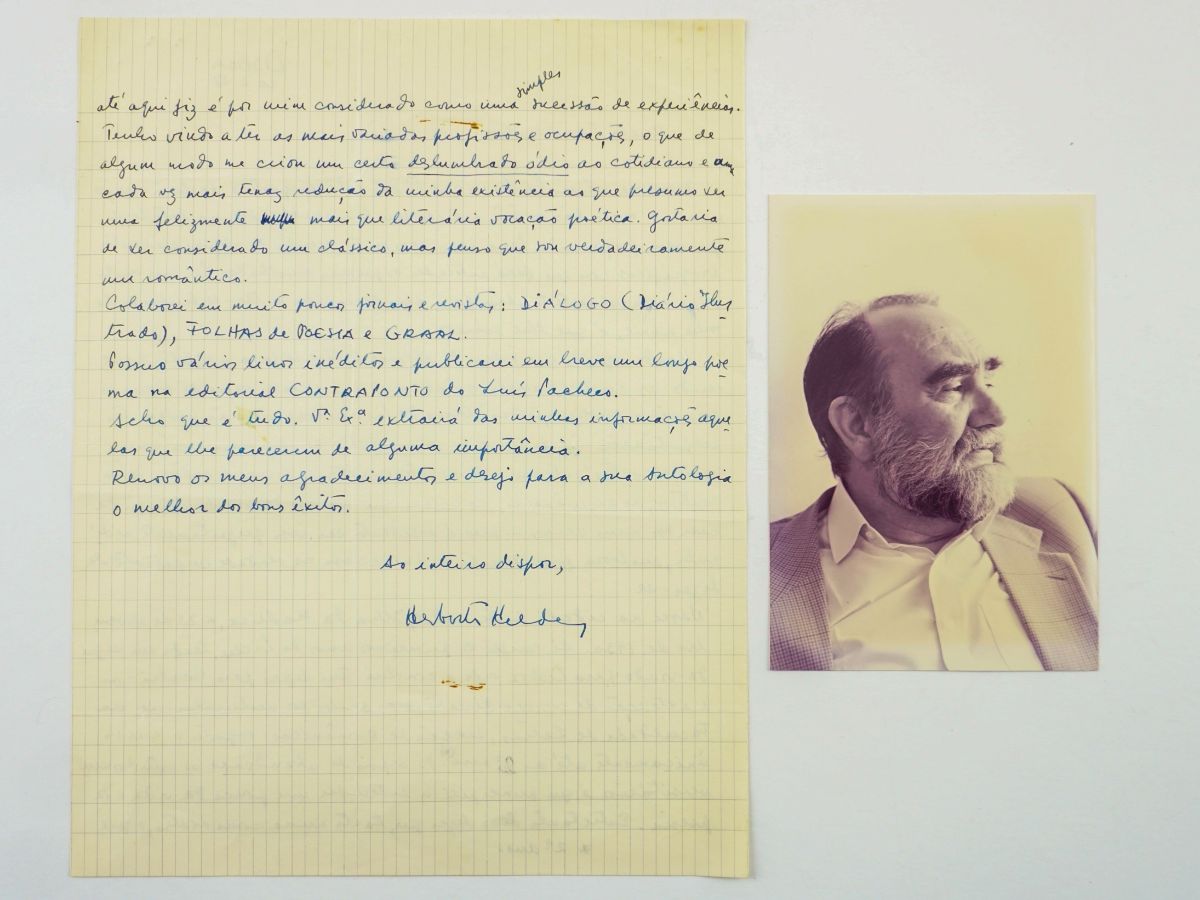 até aqui fiz é por mim considerado como uma simples sucessão de experiências.
Tenho vindo a ter as mais variadas profissões e ocupações, o que de
algum modo me criou um certo deslumbrado ódio ao cotidiano e uma
cada vez mais tenaz redução da minha existência ao que presumo ser
uma felizmente mais que literária vocação poética. Gostaria
de ser considerado um clássico, mas penso que sou verdadeiramente
um romântico.
Colaborei em muito poucos jornais e revistas: DIÁLOGO (Diário Ilus
trado), FOLHAS de POESIA e GRAAL.
Possuo vários livros inéditos e publicarei em breve um longo poe
ma na editorial CONTRAPONTO do Luís Pacheco.
Acho que é tudo. Vª Exª extrairá das minhas informações aque
las que lhe parecerem de alguma importância.
Renovo os meus agradecimentos e desejo para a sua Antologia
o melhor dos bons êxitos.
Ao inteiro dispor,
Herberto Helder